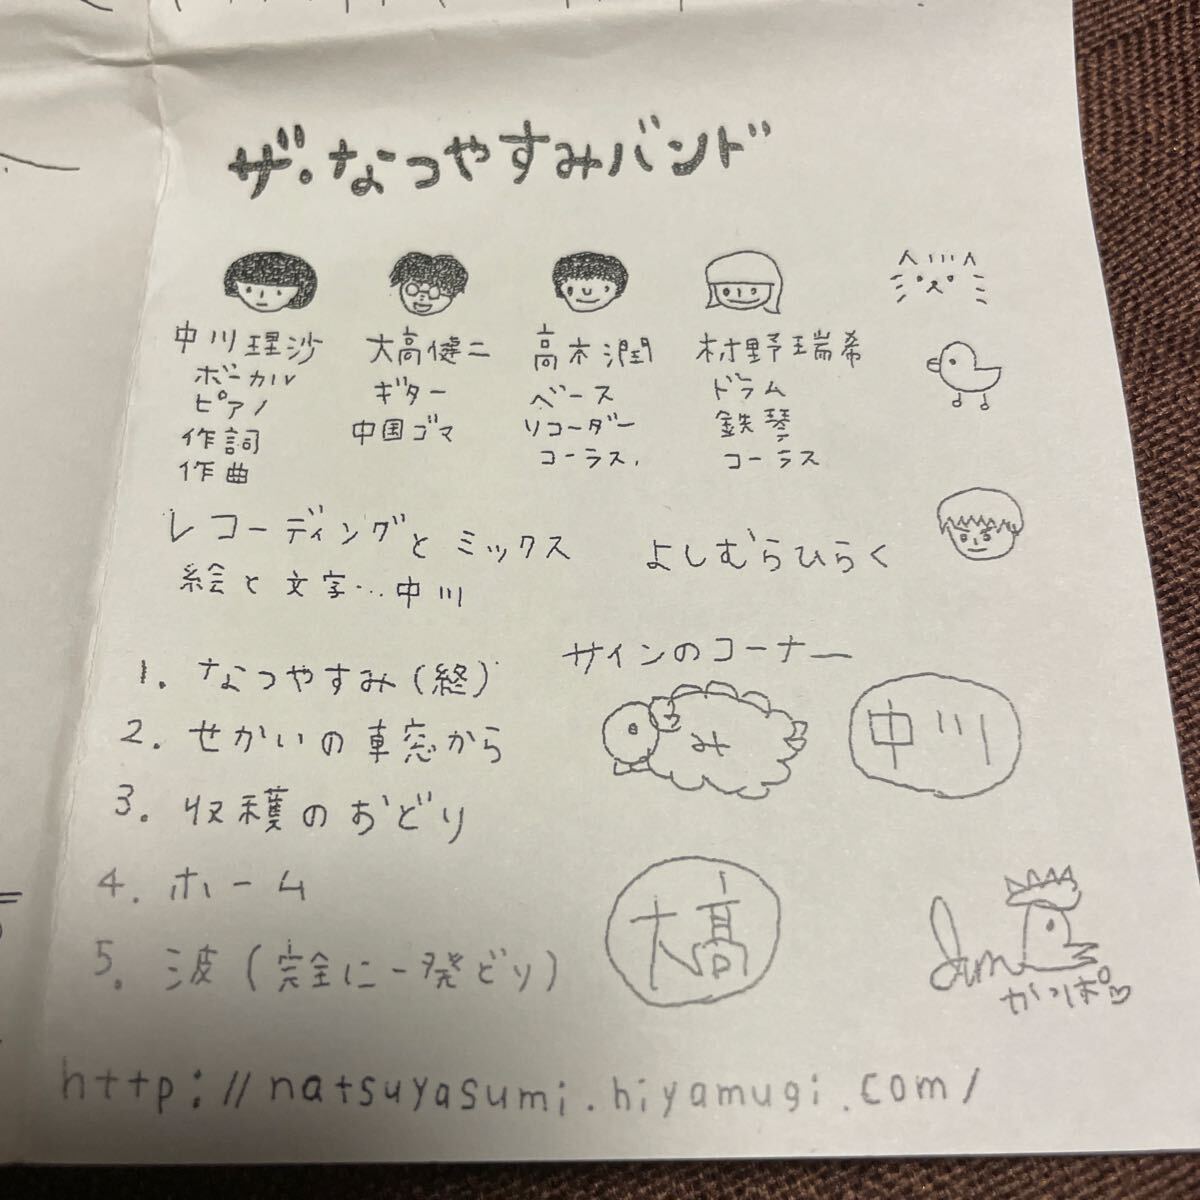 ザ・なつやすみバンド
中川理沙 大高健二 高木潤 村野瑞希
ボーカル ギター ベース ドラム
ピアノ 中国ゴマ リコーダー 鉄琴
作詞 コーラス, コーラス
作曲
レコーディングとミックス よしむらひらく
絵と文字…中川
1. なつやすみ(終)
2. せかいの車窓から
3. 収穫のおどり
4. ホーム
5. 波(完全に一発どり)
サインのコーナー
み 中川
大高
かっぱ♡
http://natsuyasumi.hiyamugi.com/